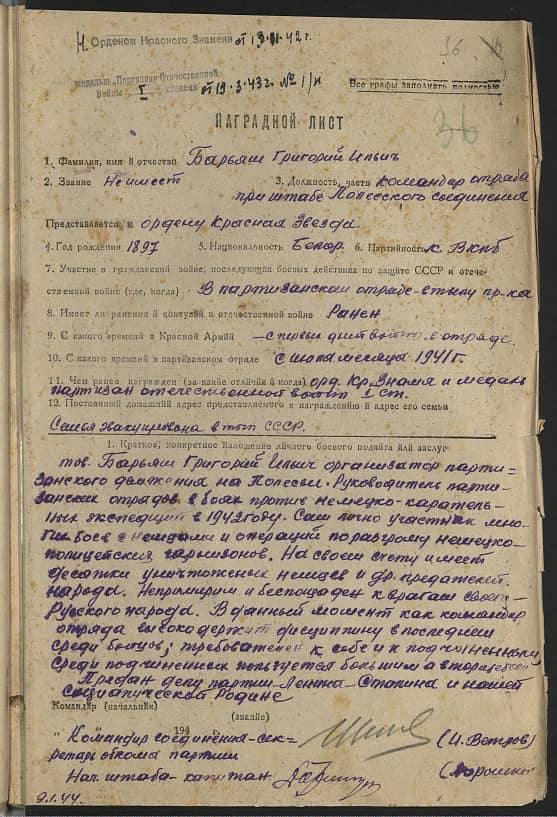 Орденом Красного Знамени от 19-
42 г. 36
медалью „Партизану Отечественной
Войны" I степени от 19.3.43 г. № 11/н
Все графы заполнять полностью
36
НАГРАДНОЙ ЛИСТ
1. Фамилия, имя и отчество Барьяш Григорий Ильич
2. Звание Не имеет 3. Должность, часть командир отряда
при штабе Полесского соединения
Представляется к ордену Красная Звезда.
4. Год рождения 1897 5. Национальность Белор. 6. Партийность к. ВКПб
7. Участие в гражданской войне, последующих боевых действиях по защите СССР и отече-
ственной войне (где, когда) В партизанском отряде в тылу пр-ка
8. Имеет ли ранения и контузии в отечественной войне Ранен
9. С какого времени в Красной Армии — с первых дней войны в отряде.
10. С какого времени в партизанском отряде с июля месяца 1941 г.
11. Чем ранее награжден (за какие отличия и когда) орд. Кр. Знамя и медаль
партизан отечественной войны I ст.
12. Постоянный домашний адрес представляемого к награждению и адрес его семьи
Семья эвакуирована в тыл СССР.
1. Краткое, конкретное изложение личного боевого подвига или заслуг
тов. Барьяш Григорий Ильич организатор парти=
занского движения на Полесьи. Руководитель парти-
занских отрядов в боях против немецко-каратель-
ных экспедиций в 1942 году. Сам лично участник мно-
гих боев с немцами и операций по разгрому немецко-
полицейских гарнизонов. На своем счету имеет
десятки уничтоженых немцев и др. предателей
народа. Непримирим и беспощаден к врагам своего
Русского народа. В данный момент как командир
отряда высоко держит дисциплину в последнем
среди бойцов; требователен к себе и к подчиненным
Среди подчиненных пользуется большим авторитетом
Предан делу партии Ленина-Сталина и нашей
социалистической Родине
Командир (начальник)
(звание)
194 г.
"Командир соединения-сек=
ретарь обкома партии (И. Ветров)
Нач. штаба-капитан
9.1.44.